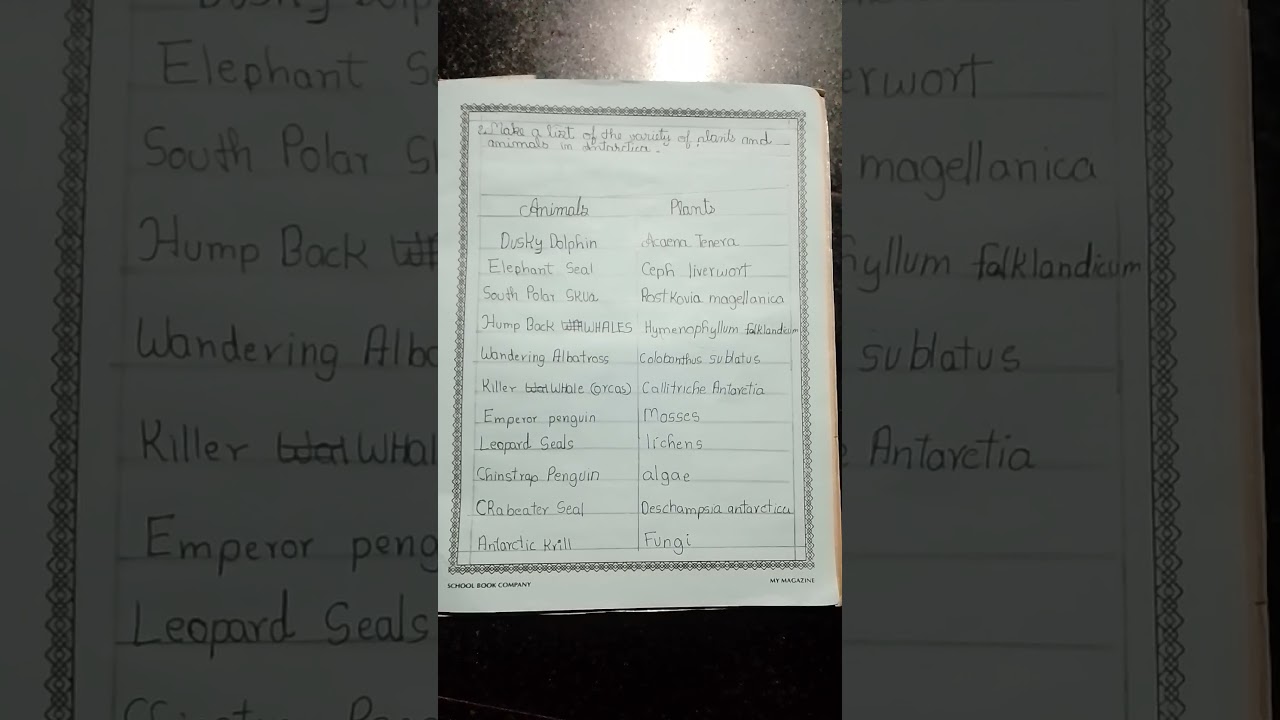 2. Make a list of the variety of plants and
animals in Antarctica.
Animals Plants
Dusky Dolphin Acaena Tenera
Elephant Seal Ceph liverwort
South Polar Skua Rostkovia magellanica
Hump Back WHALES Hymenophyllum falklandicum
Wandering Albatross Colobanthus sublatus
Killer WHale (orcas) Callitriche Antarctia
Emperor penguin Mosses
Leopard Seals lichens
Chinstrap Penguin algae
CRabeater Seal Deschampsia antarctica
Antarctic Krill Fungi
SCHOOL BOOK COMPANY MY MAGAZINE